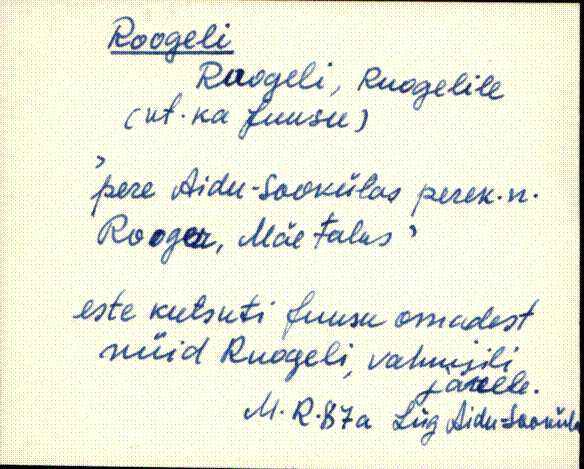 Roogeli
Ruogeli, Ruogelile
(vt. ka Juusu)
'pere Aidu-Sookülas perek.n.
Rooger, Mäe talus'
este kutsuti Juusu omadest
nüid Ruogeli,
järele.
M. R. 87a Lüg Aidu-Sooküla